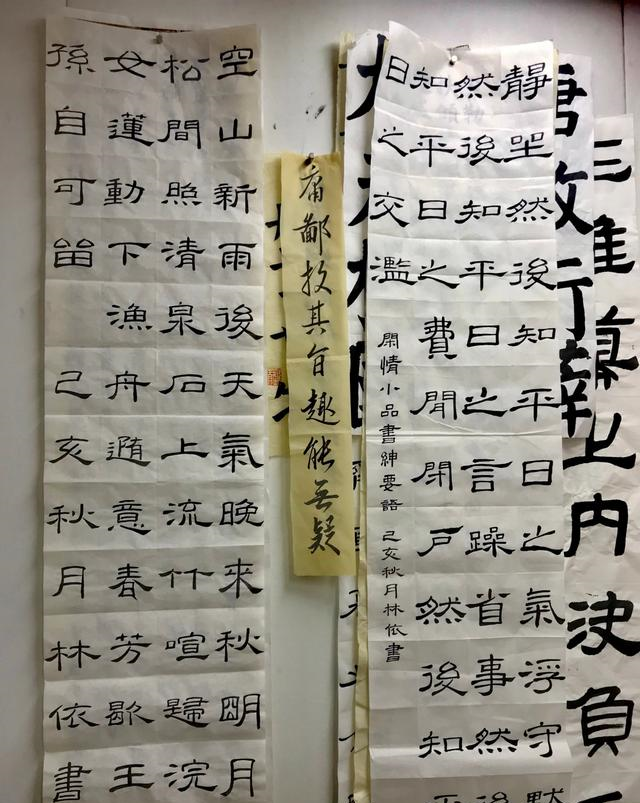 三
上内決負
唐故行
静坐然後知平日之氣浮守默
然後知平日之言躁省事然後
知平日之費閒閉戶然後知平
日之交濫
閑情小品書紳要語 己亥秋月林依書
庸鄙投其旨趣能无疑
空山新雨後天氣晚来秋明月
松間照清泉石上流竹喧歸浣
女蓮動下漁舟随意春芳歇王
孫自可留 己亥秋月林依書